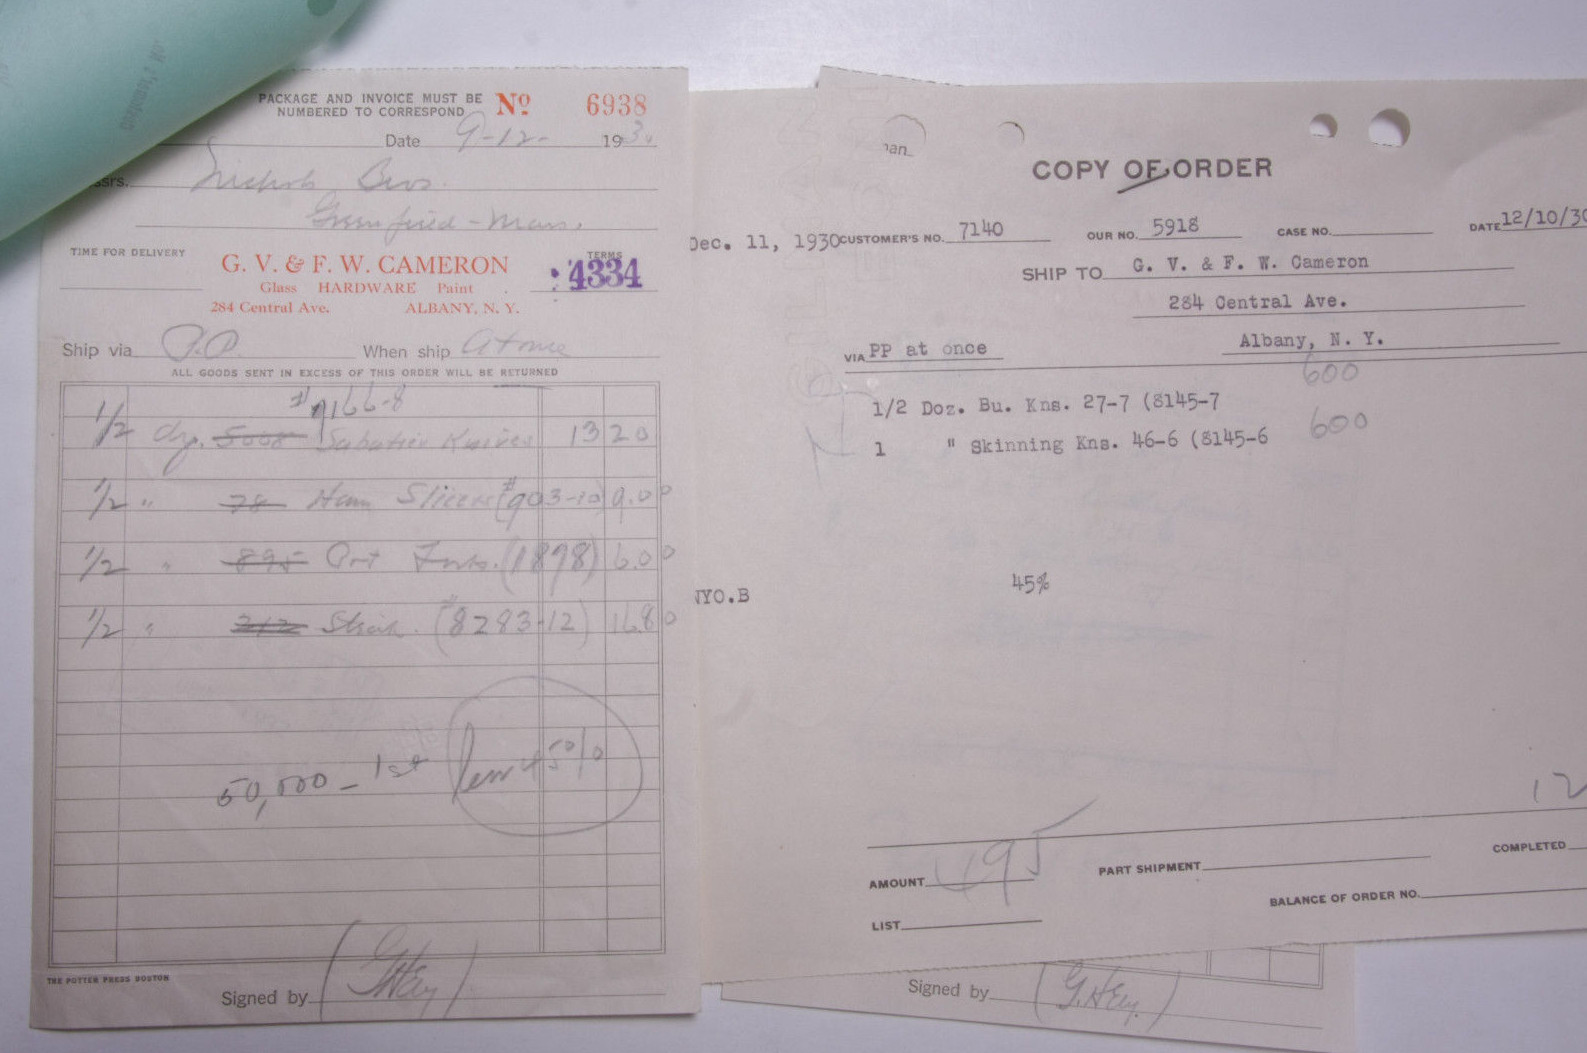 PACKAGE AND INVOICE MUST BE
NUMBERED TO CORRESPOND
No 6938
Date 9-12- 1930
ssrs. Nichols Bros.
Greenfield - Mass.
TIME FOR DELIVERY
G. V. & F. W. CAMERON
Glass HARDWARE Paint
284 Central Ave. ALBANY, N. Y.
TERMS
4334
Ship via P.P. When ship At once
ALL GOODS SENT IN EXCESS OF THIS ORDER WILL BE RETURNED
#9166-8
1/2 dz. 5008 Sabatier Knives 13 20
1/2 " 78 Ham Slicers (#903-10) 9.00
1/2 " 895 Pot Fks. (1898) 6.00
1/2 " 212 Steak (#8283-12) 16.80
50,000 - 1st less 45%
THE POTTER PRESS BOSTON
Signed by (GHEy)
an
COPY OF ORDER
Dec. 11, 1930 CUSTOMER'S NO. 7140 OUR NO. 5918 CASE NO. DATE 12/10/30
SHIP TO G. V. & F. W. Cameron
284 Central Ave.
VIA PP at once Albany, N. Y.
600
1/2 Doz. Bu. Kns. 27-7 (8145-7
1 " Skinning Kns. 46-6 (8145-6 600
NYO.B 45%
12
AMOUNT 495 PART SHIPMENT COMPLETED
LIST BALANCE OF ORDER NO.
Signed by (G.HEy.)